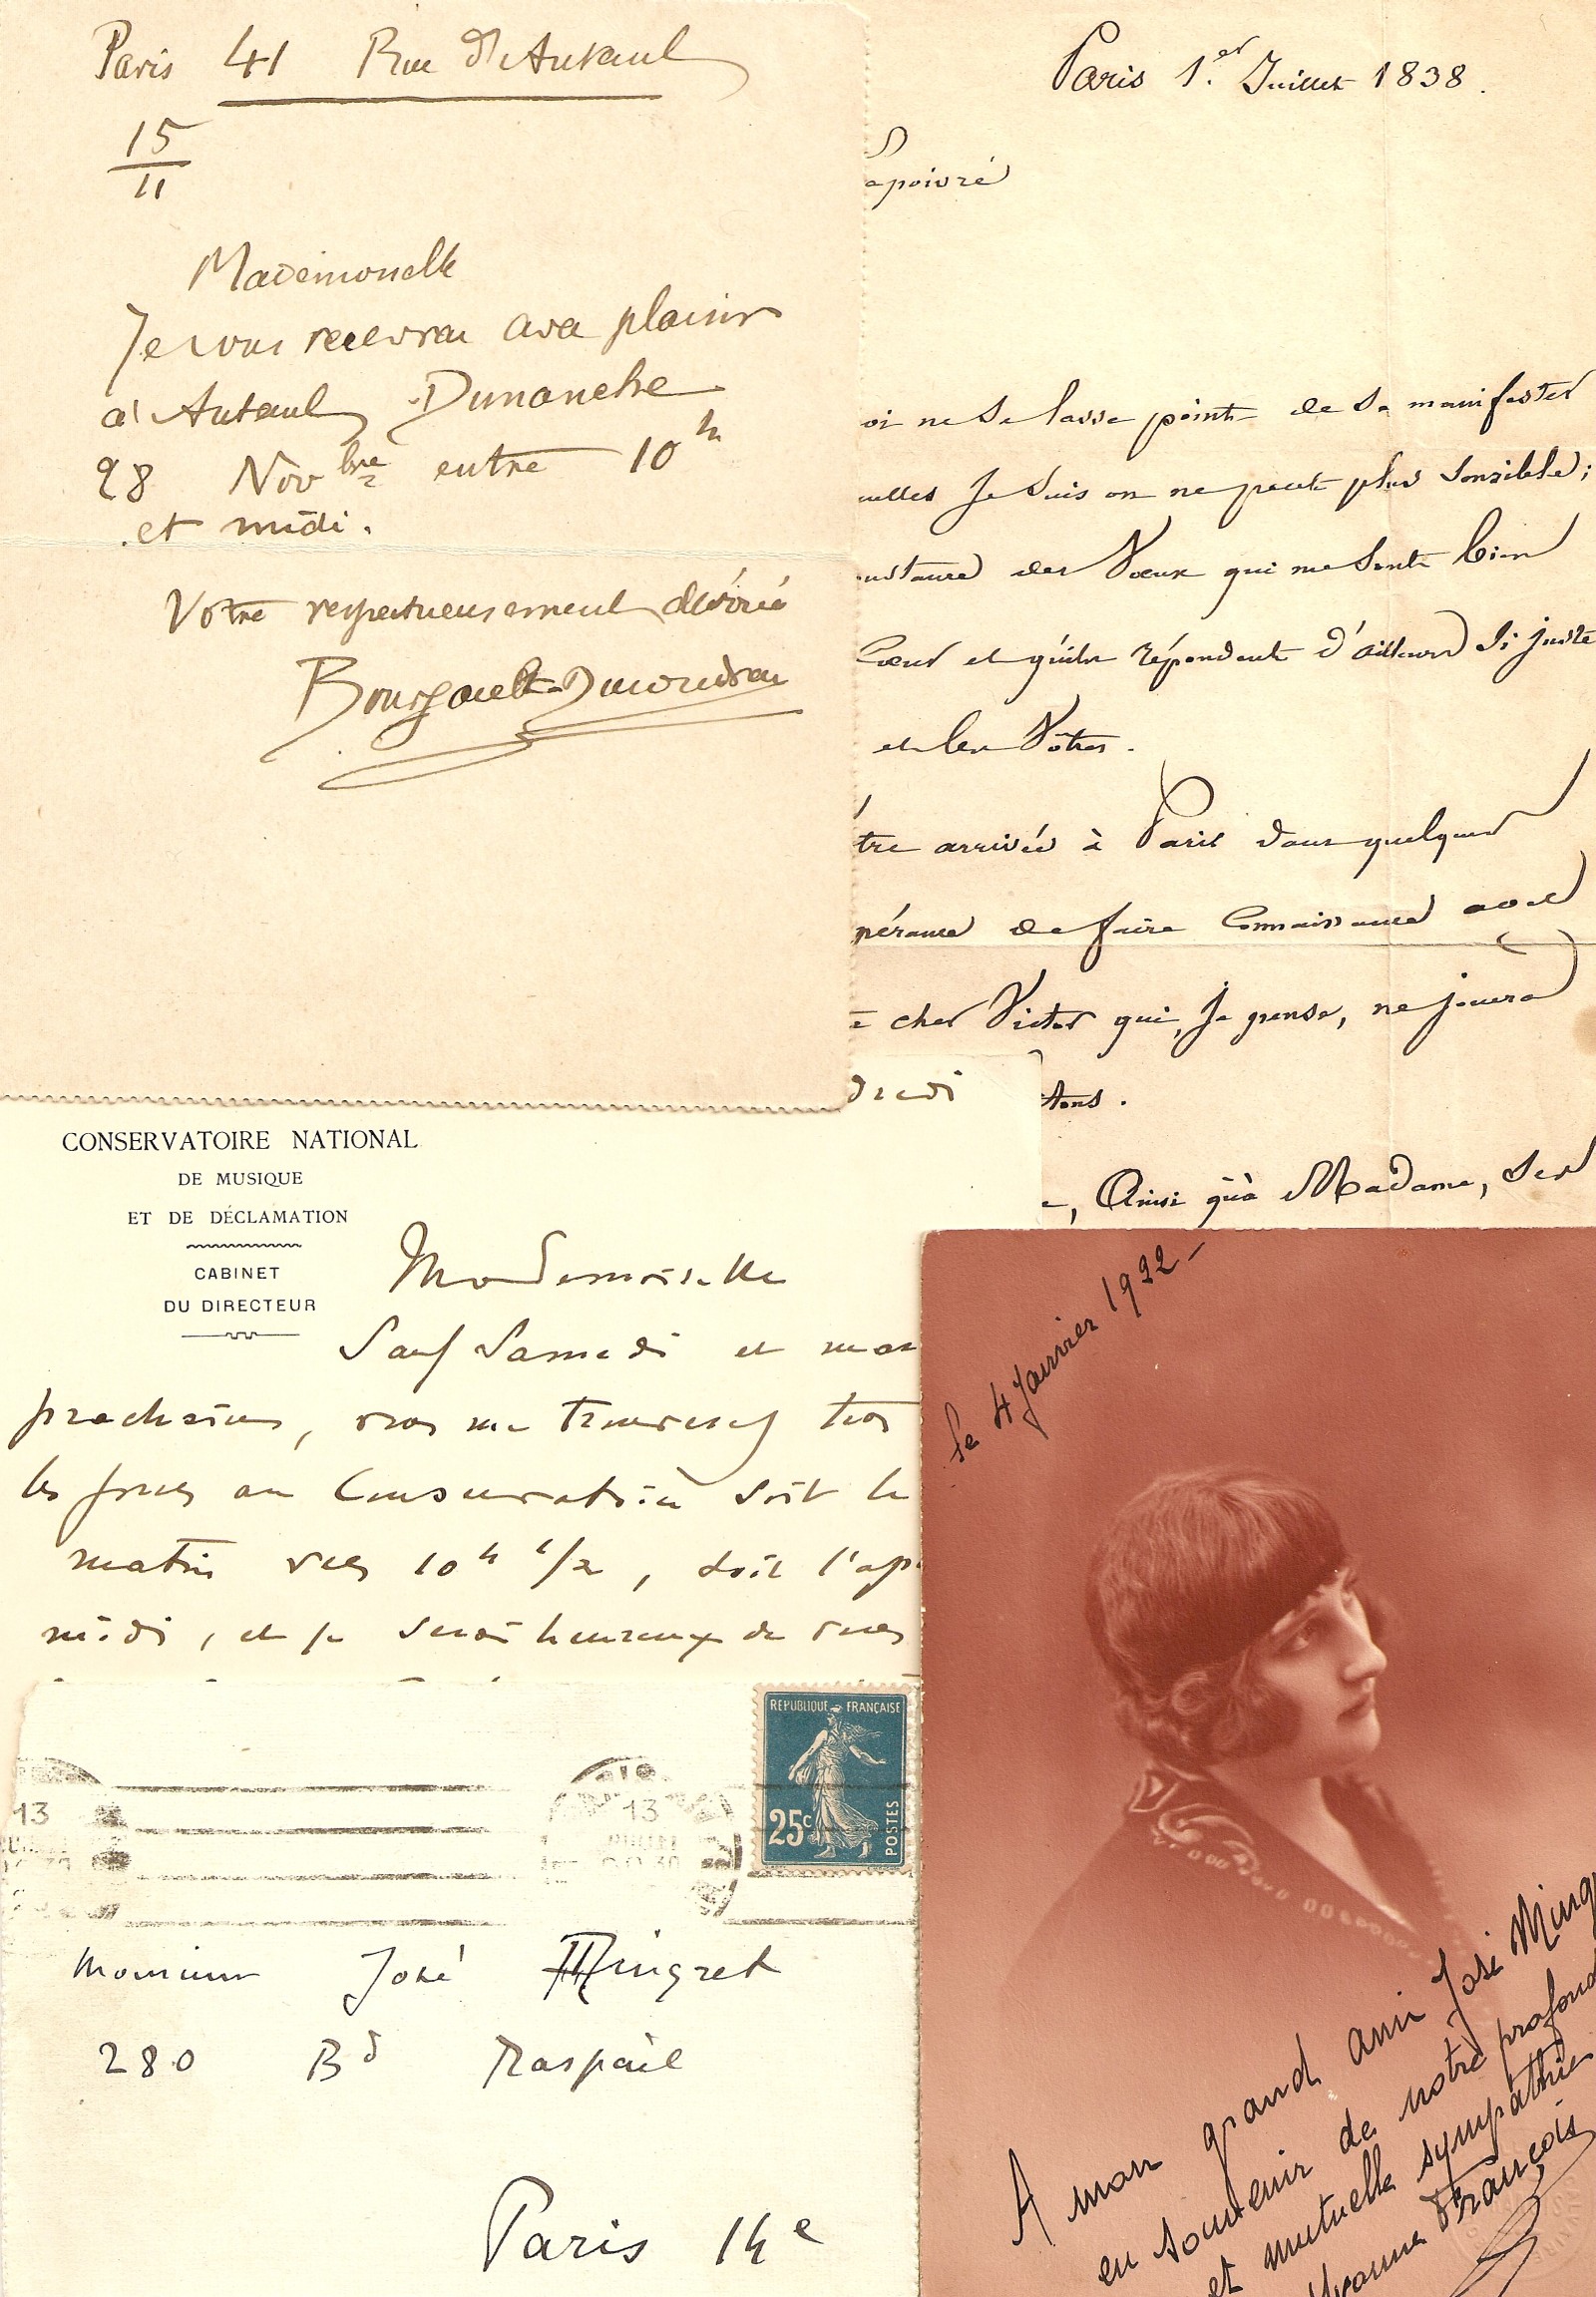 Paris 41 Rue d'Auteuil
15
11
Mademoiselle
Je vous recevrai avec plaisir
à Auteuil Dimanche
28 Novbre entre 10h
et midi.
Votre respectueusement dévoué
Bourgault-Ducoudray
Paris 1.er Juillet 1838.
apoivré
oi ne se lasse point de se manifester
uelles je suis on ne peut plus sensible;
des Vœux qui me sont bien
Cœur et qui répondent d'ailleurs si juste
et les Vôtres.
tre arrivée à Paris dans quelques
pérance de faire connaissance avec
e cher Victor qui, je pense, ne jouera
tons.
e, Ainsi qu'à Madame, ses
dredi
CONSERVATOIRE NATIONAL
DE MUSIQUE
ET DE DÉCLAMATION
CABINET
DU DIRECTEUR
Mademoiselle
Sauf Samedi et mar
prochains, vous me trouverez tous
les jours au Conservatoire soit le
matin vers 10h 1/2, soit l'apr
midi, et je serai heureux de vous
REPUBLIQUE FRANÇAISE
25c
POSTES
13
13
Monsieur José Mingret
280 Bd Raspail
Paris 14e
le 4 Janvier 1922 -
A mon grand ami José Ming
en souvenir de notre profond
et mutuelle sympathie
Yvonne François